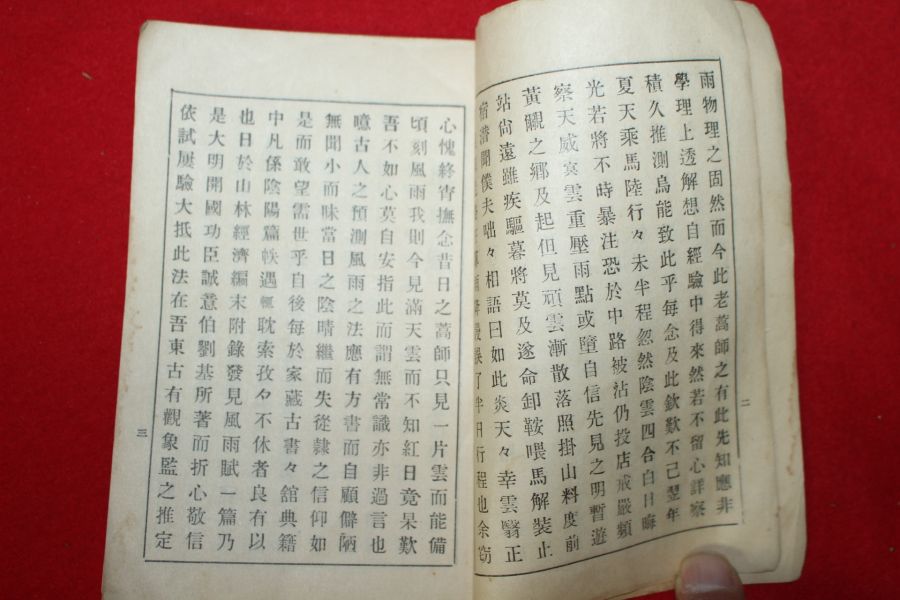 雨物理之固然而今此老蒿師之有此先知應非
學理上透解想自經驗中得來然若不留心詳察
積久推測烏能致此乎每念及此欽歎不已翌年
夏天乘馬陸行々未半程忽然陰雲四合白日晦
光若將不時暴注恐於中路被沾仍投店戒嚴頻
察天威寅雲重壓雨點或墮自信先見之明暫遊
黃䵷之鄕及起但見頑雲漸散落照掛山料度前
站尙遠雖疾驅暮將莫及遂命卸鞍喂馬解裝止
宿潛聞僕夫咄々相語曰如此炎天々幸雲翳正
誤了半日行程也余竊
二
心愧終宵撫念昔日之蒿師只見一片雲而能備
頃刻風雨我則今見滿天雲而不知紅日竟杲歎
吾不如心莫自安指此而謂無常識亦非過言也
噫古人之預測風雨之法應有方書而自顧僻陋
無聞小而昧當日之陰晴繼而失從隷之信仰如
是而敢望需世乎自後每於家藏古書々舘典籍
中凡係陰陽篇帙遇輒耽索孜々不休者良有以
也日於山林經濟編末附錄發見風雨賦一篇乃
是大明開國功臣誠意伯劉基所著而折心敬信
依試屢驗大抵此法在吾東古有觀象監之推定
三